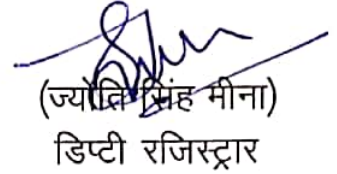 (ज्योति सिंह मीना)
डिप्टी रजिस्ट्रार